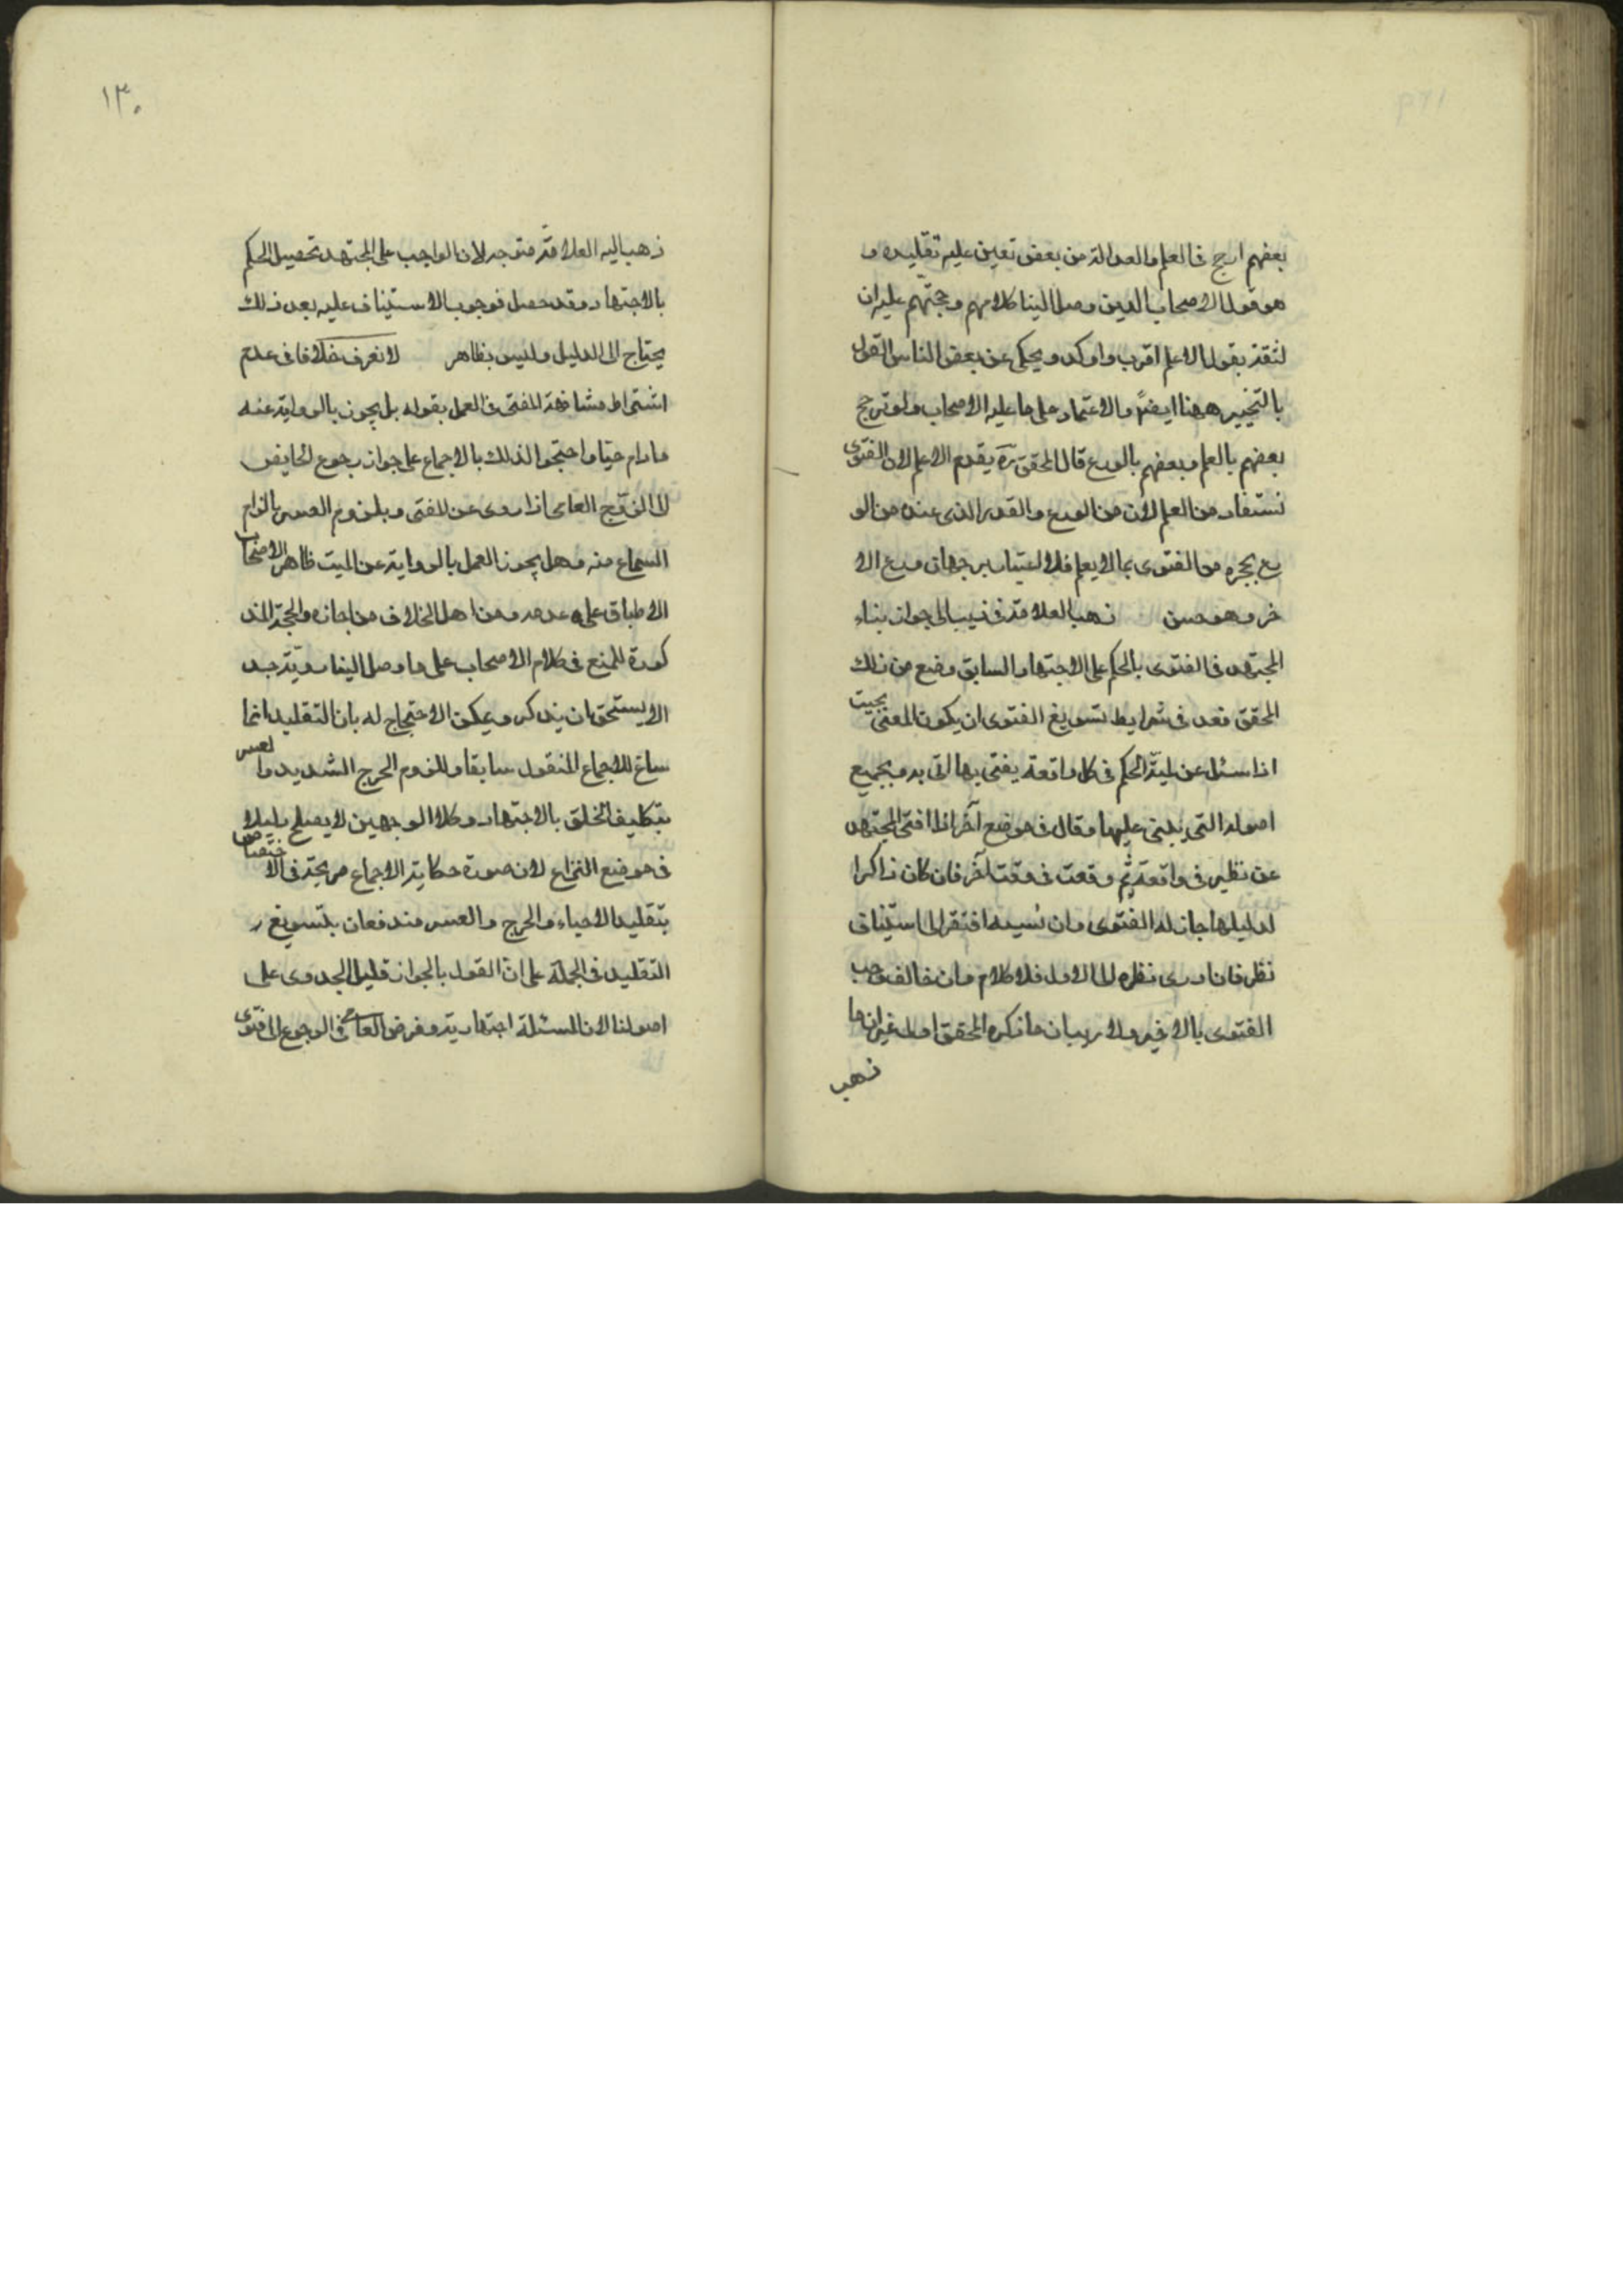 بعضهم ارجح فى العلم والعدالة من بعض تعين عليه تقليده و
هو قول الاصحاب الذين وصل الينا كلامهم وحجتهم عليه ان
الثقة بقول الاعلم اقرب واوكد ويحكى عن بعض الناس القول
بالتخيير ههنا ايضا والاعتماد على ما عليه الاصحاب ولو ترجح
بعضهم بالعلم وبعضهم بالورع قال المحقق ره يقدم الاعلم لان الفتوى
تستفاد من العلم لا من الورع والقدر الذى عنده من الو
رع يحجزه من الفتوى بما لا يعلم فلا اعتبار برجحان ورع الا
خر وهو حسن ذهب العلامة فى يب الى جواز بناء
المجتهد فى الفتوى بالحكم على الاجتهاد السابق ومنع من ذلك
المحقق فعد فى شرايط تسويغ الفتوى ان يكون المفتى بحيث
اذا سئل عن لمية الحكم فى كل واقعة يفتى بها اتى به وبجميع
اصوله التى يبنى عليها وقال فى موضع آخر اذا افتى المجتهد
عن نظر فى واقعة ثم وقعت فى وقت آخر فان كان ذاكرا
لدليلها جاز له الفتوى وان نسيه افتقر الى استيناف
نظر فان ادى نظره الى الاول فلا كلام وان خالفه وجب
الفتوى بالاخير ولا ريب ان ما ذكره المحقق اولى غير ان ما
ذهب
١٣٠
ذهب اليه العلامة متوجه لان الواجب على المجتهد تحصيل الحكم
بالاجتهاد وقد حصل فوجوب الاستيناف عليه بعد ذلك
يحتاج الى الدليل وليس بظاهر لا نعرف خلافا فى عدم
اشتراط مشافهة المفتى فى العمل بقوله بل يجوز بالرواية عنه
مادام حيا واحتجوا لذلك بالاجماع على جواز رجوع الحايض
الى الزوج العامى اذا روى عن المفتى وبلزوم العسر بالزام
السماع منه وهل يجوز العمل بالرواية عن الميت ظاهر الاصحاب
الاطباق على عدمه ومن اهل الخلاف من اجازه والحجة المذ
كورة للمنع فى كلام الاصحاب على ما وصل الينا ردية جد
الا يستحق ان يذكر ويمكن الاحتجاج له بان التقليد انما
ساغ للاجماع المنقول سابقا وللزوم الحرج الشديد والعسر
بتكليف الخلق بالاجتهاد وكلا الوجهين لا يصلح دليلا
فى موضع النزاع لان صورة حكاية الاجماع صريحة فى الاختصاص
بتقليد الاحياء والحرج والعسر مندفعان بتسويغ
التقليد فى الجملة على ان القول بالجواز قليل الجدوى على
اصولنا لان المسئلة اجتهادية وفرض العامى فى الرجوع الى فتوى